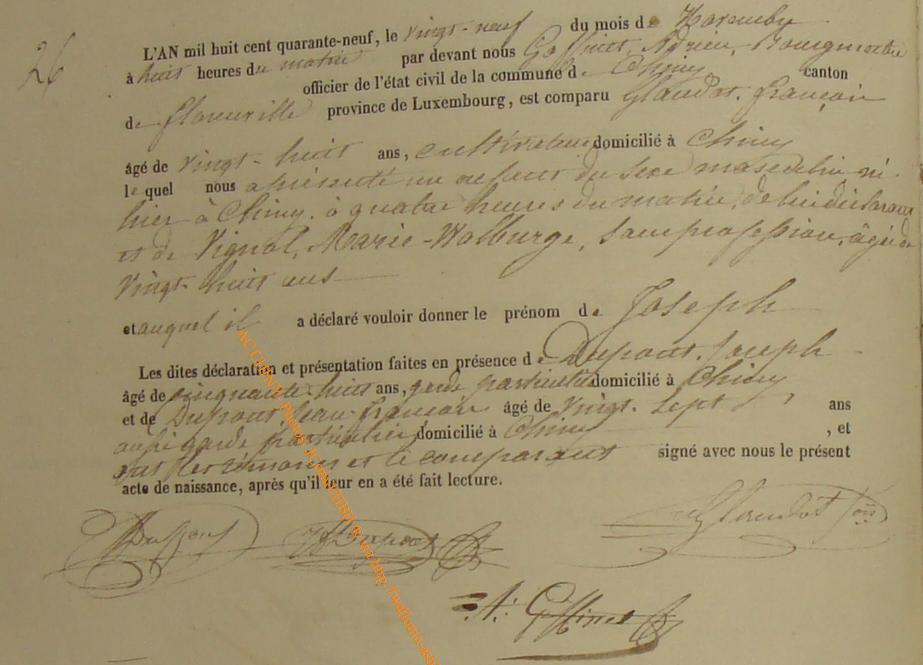 26
L'AN mil huit cent quarante-neuf, le vingt-neuf du mois de Novembre
à huit heures du matin par devant nous Adrien, Bourgmestre
officier de l'état civil de la commune de Chiny canton
de Florenville province de Luxembourg, est comparu Glaudot, François
âgé de vingt-huit ans, cultivateur domicilié à Chiny
lequel nous a présenté un enfant du sexe masculin né
hier à Chiny, à quatre heures du matin, de lui déclarant
et de Vignol, Marie-Walburge, sans profession, âgée de
vingt-huit ans
et auquel il a déclaré vouloir donner le prénom de Joseph
Les dites déclaration et présentation faites en présence de Dupont, Joseph
âgé de cinquante-huit ans, garde particulier domicilié à Chiny
et de Dupont, Jean-François âgé de vingt-sept, ans
aussi garde particulier domicilié à Chiny, et
ont les témoins et le comparant signé avec nous le présent
acte de naissance, après qu'il leur en a été fait lecture.
Dupont Dupont Glaudot